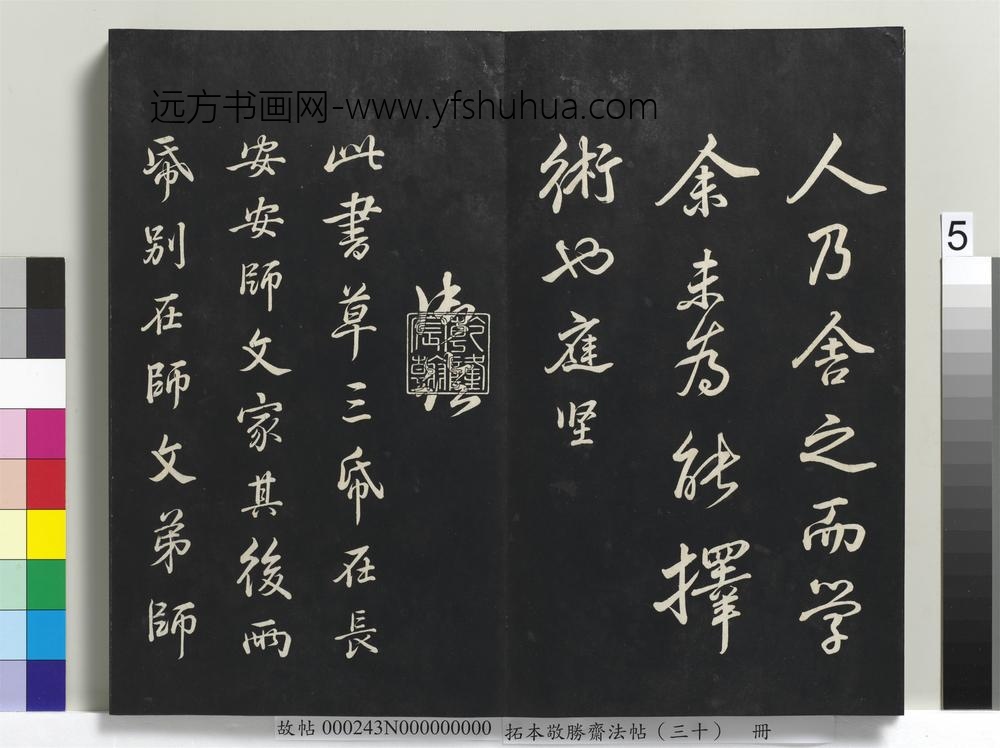 远方书画网-www.yfshuhua.com
人乃舍之而学
余未为能擇
術也庭坚
乾隆宸翰
此書草三帋在長
安安師文家其後兩
帋别在師文弟師
5
故帖 000243N000000000 拓本敬勝齋法帖(三十) 冊